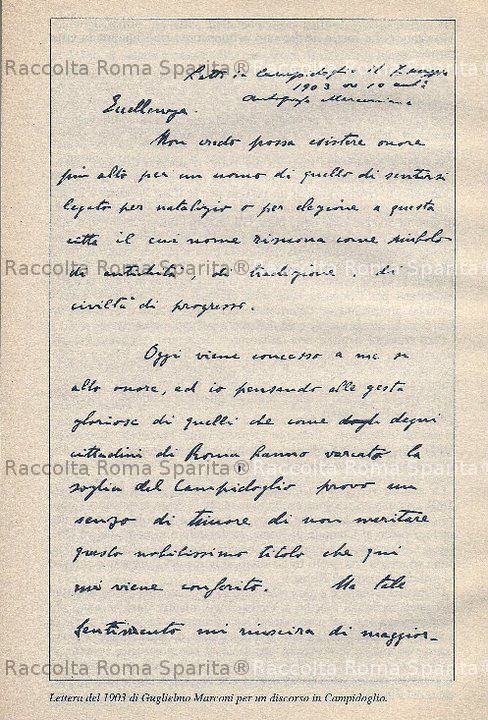 Raccolta Roma Sparita®
Raccolta Roma Sparita®
Letto in Campidoglio il 7 maggio
1903 ore 10 ant.
Autografo Marconiano
Eccellenza
Non credo possa esistere onore
più alto per un uomo di quello di sentirsi
legato per natalizio o per elezione a questa
città il cui nome risuona come simbolo
Raccolta Roma Sparita®
Raccolta Roma Sparita®
di antichità, di tradizione, di
civiltà di progresso.
Oggi viene concesso a me sì
alto onore, ed io pensando alle gesta
gloriose di quelli che come degni
cittadini di Roma hanno varcato la
Raccolta Roma Sparita®
Raccolta Roma Sparita®
soglia del Campidoglio provo un
senzo di timore di non meritare
questo nobilissimo titolo che qui
mi viene conferito. Ma tale
sentimento mi riuscirà di maggior-
Raccolta Roma Sparita®
Raccolta Roma Sparita®
Lettera del 1903 di Guglielmo Marconi per un discorso in Campidoglio.